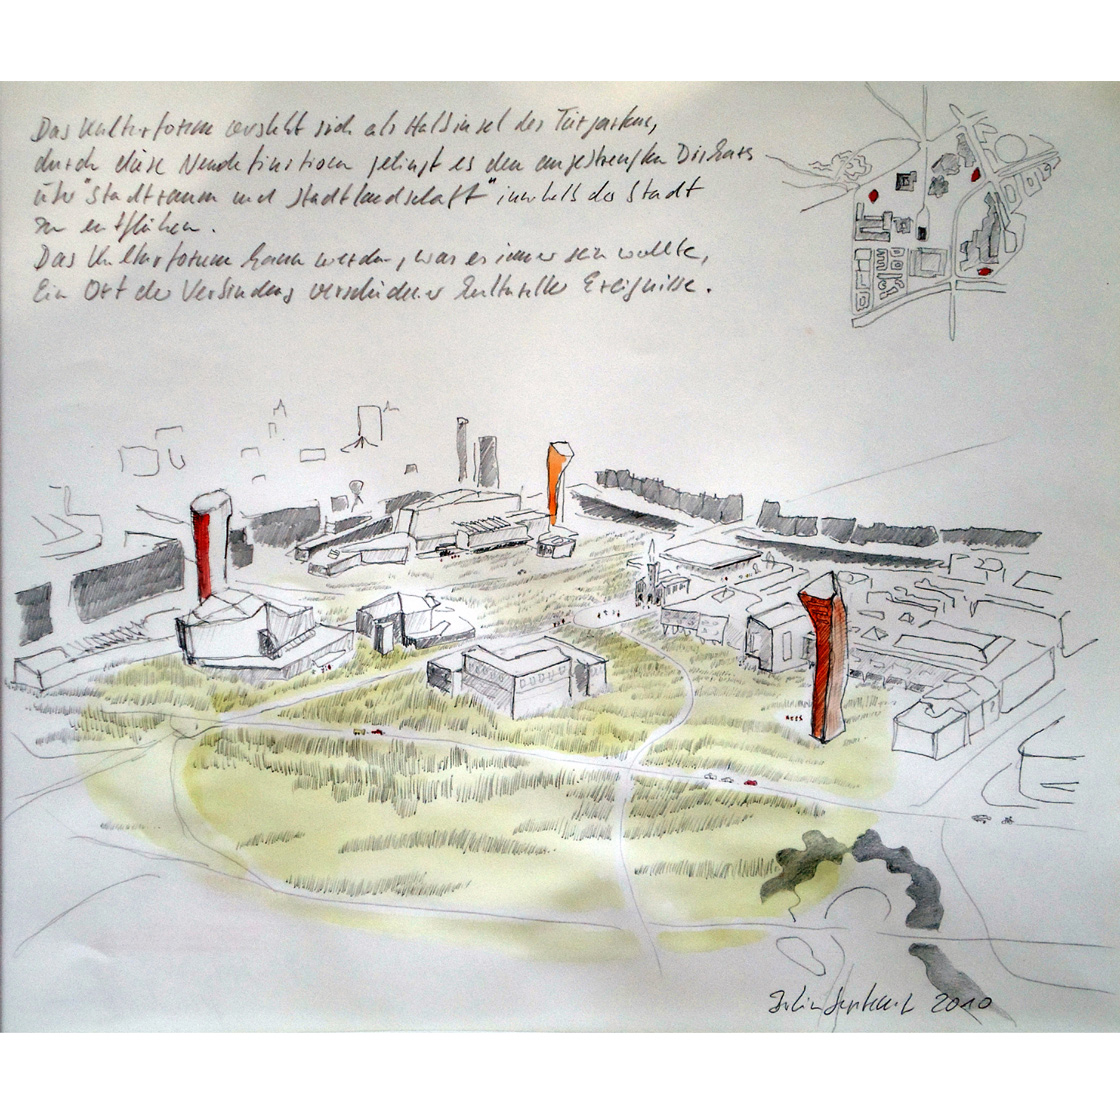 Das Kulturforum versteht sich als Halbinsel des Tiergartens,
durch diese Neudefinition gelingt es den angestrengten Diskurs
über "Stadtraum und Stadtlandschaft" innerhalb der Stadt
zu entfliehen.
Das Kulturforum kann werden, was es immer sein wollte,
Ein Ort der Verbindung verschiedener kultureller Ereignisse.
2010